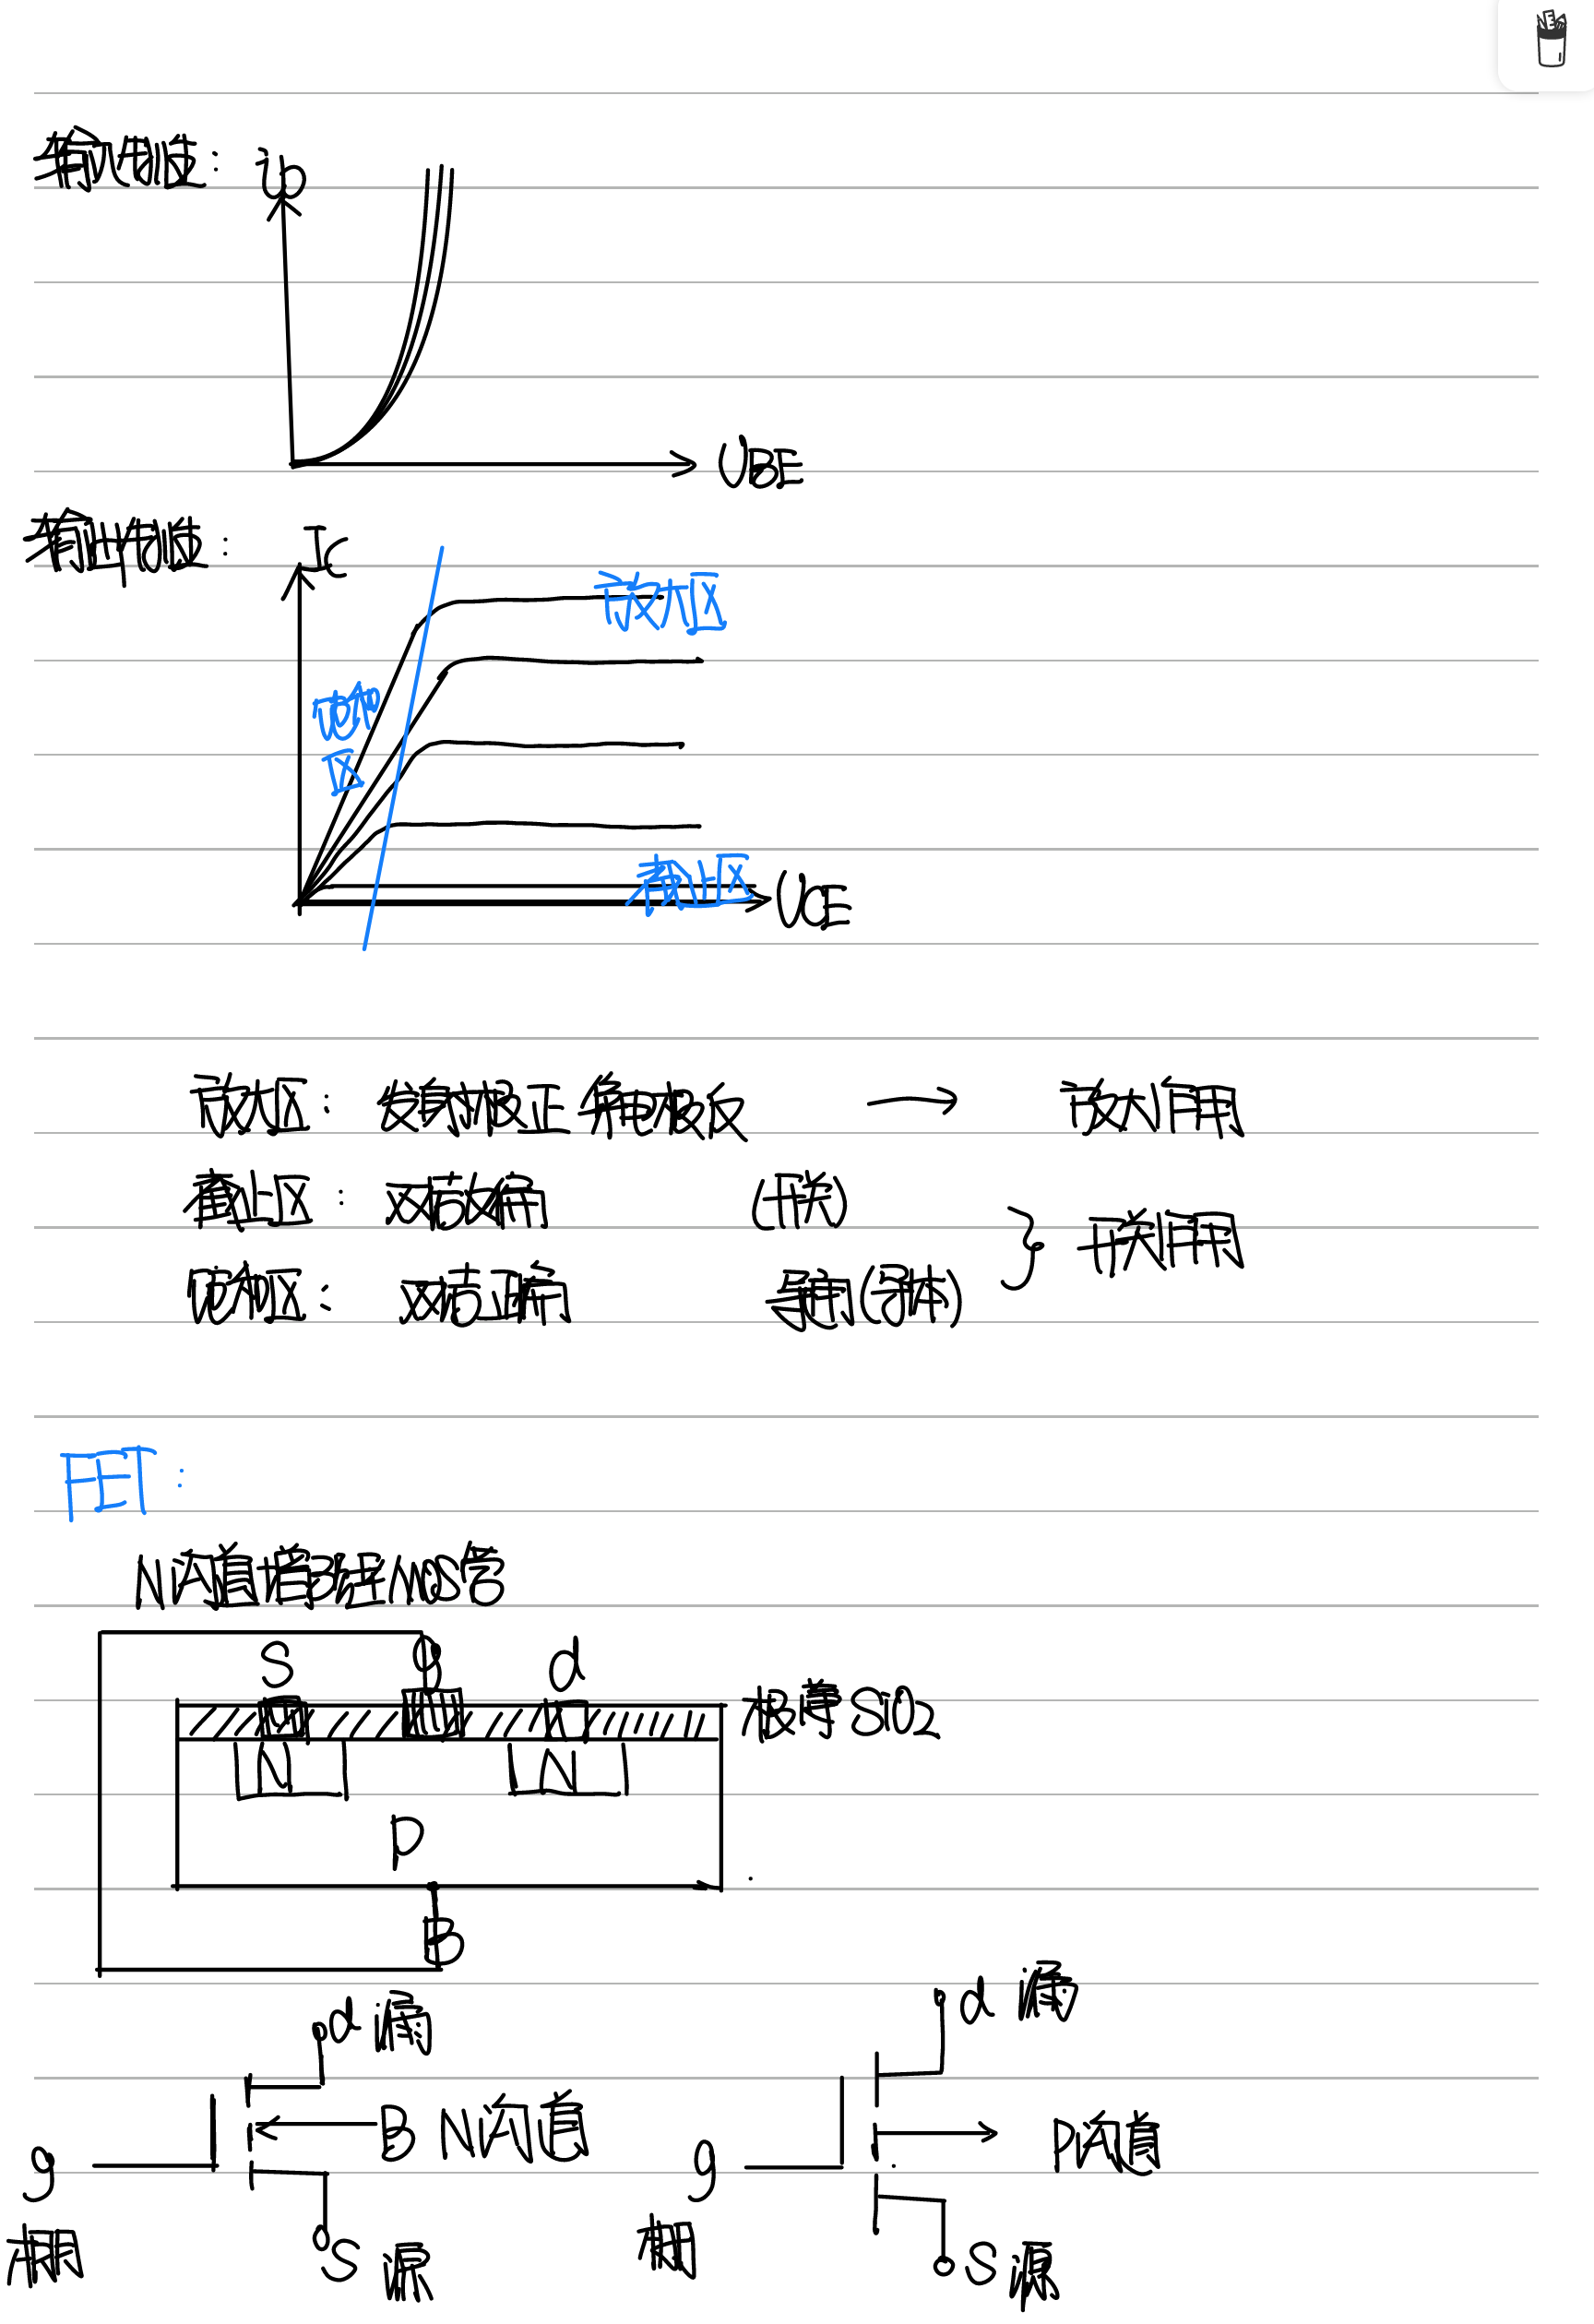 输入特性: ib
UBE
输出特性: Ic
放大区
饱和
区
截止区 UCE
放大区: 发射极正 集电极反 → 放大作用
截止区: 双结反偏 (开关) } 开关作用
饱和区: 双结正偏 导通(导体)
FET:
N沟道增强型MOS管
S g d
极薄SiO2
N N
P
B
d 漏 d 漏
B N沟道 P沟道
g g
栅 栅
S 源 S 源